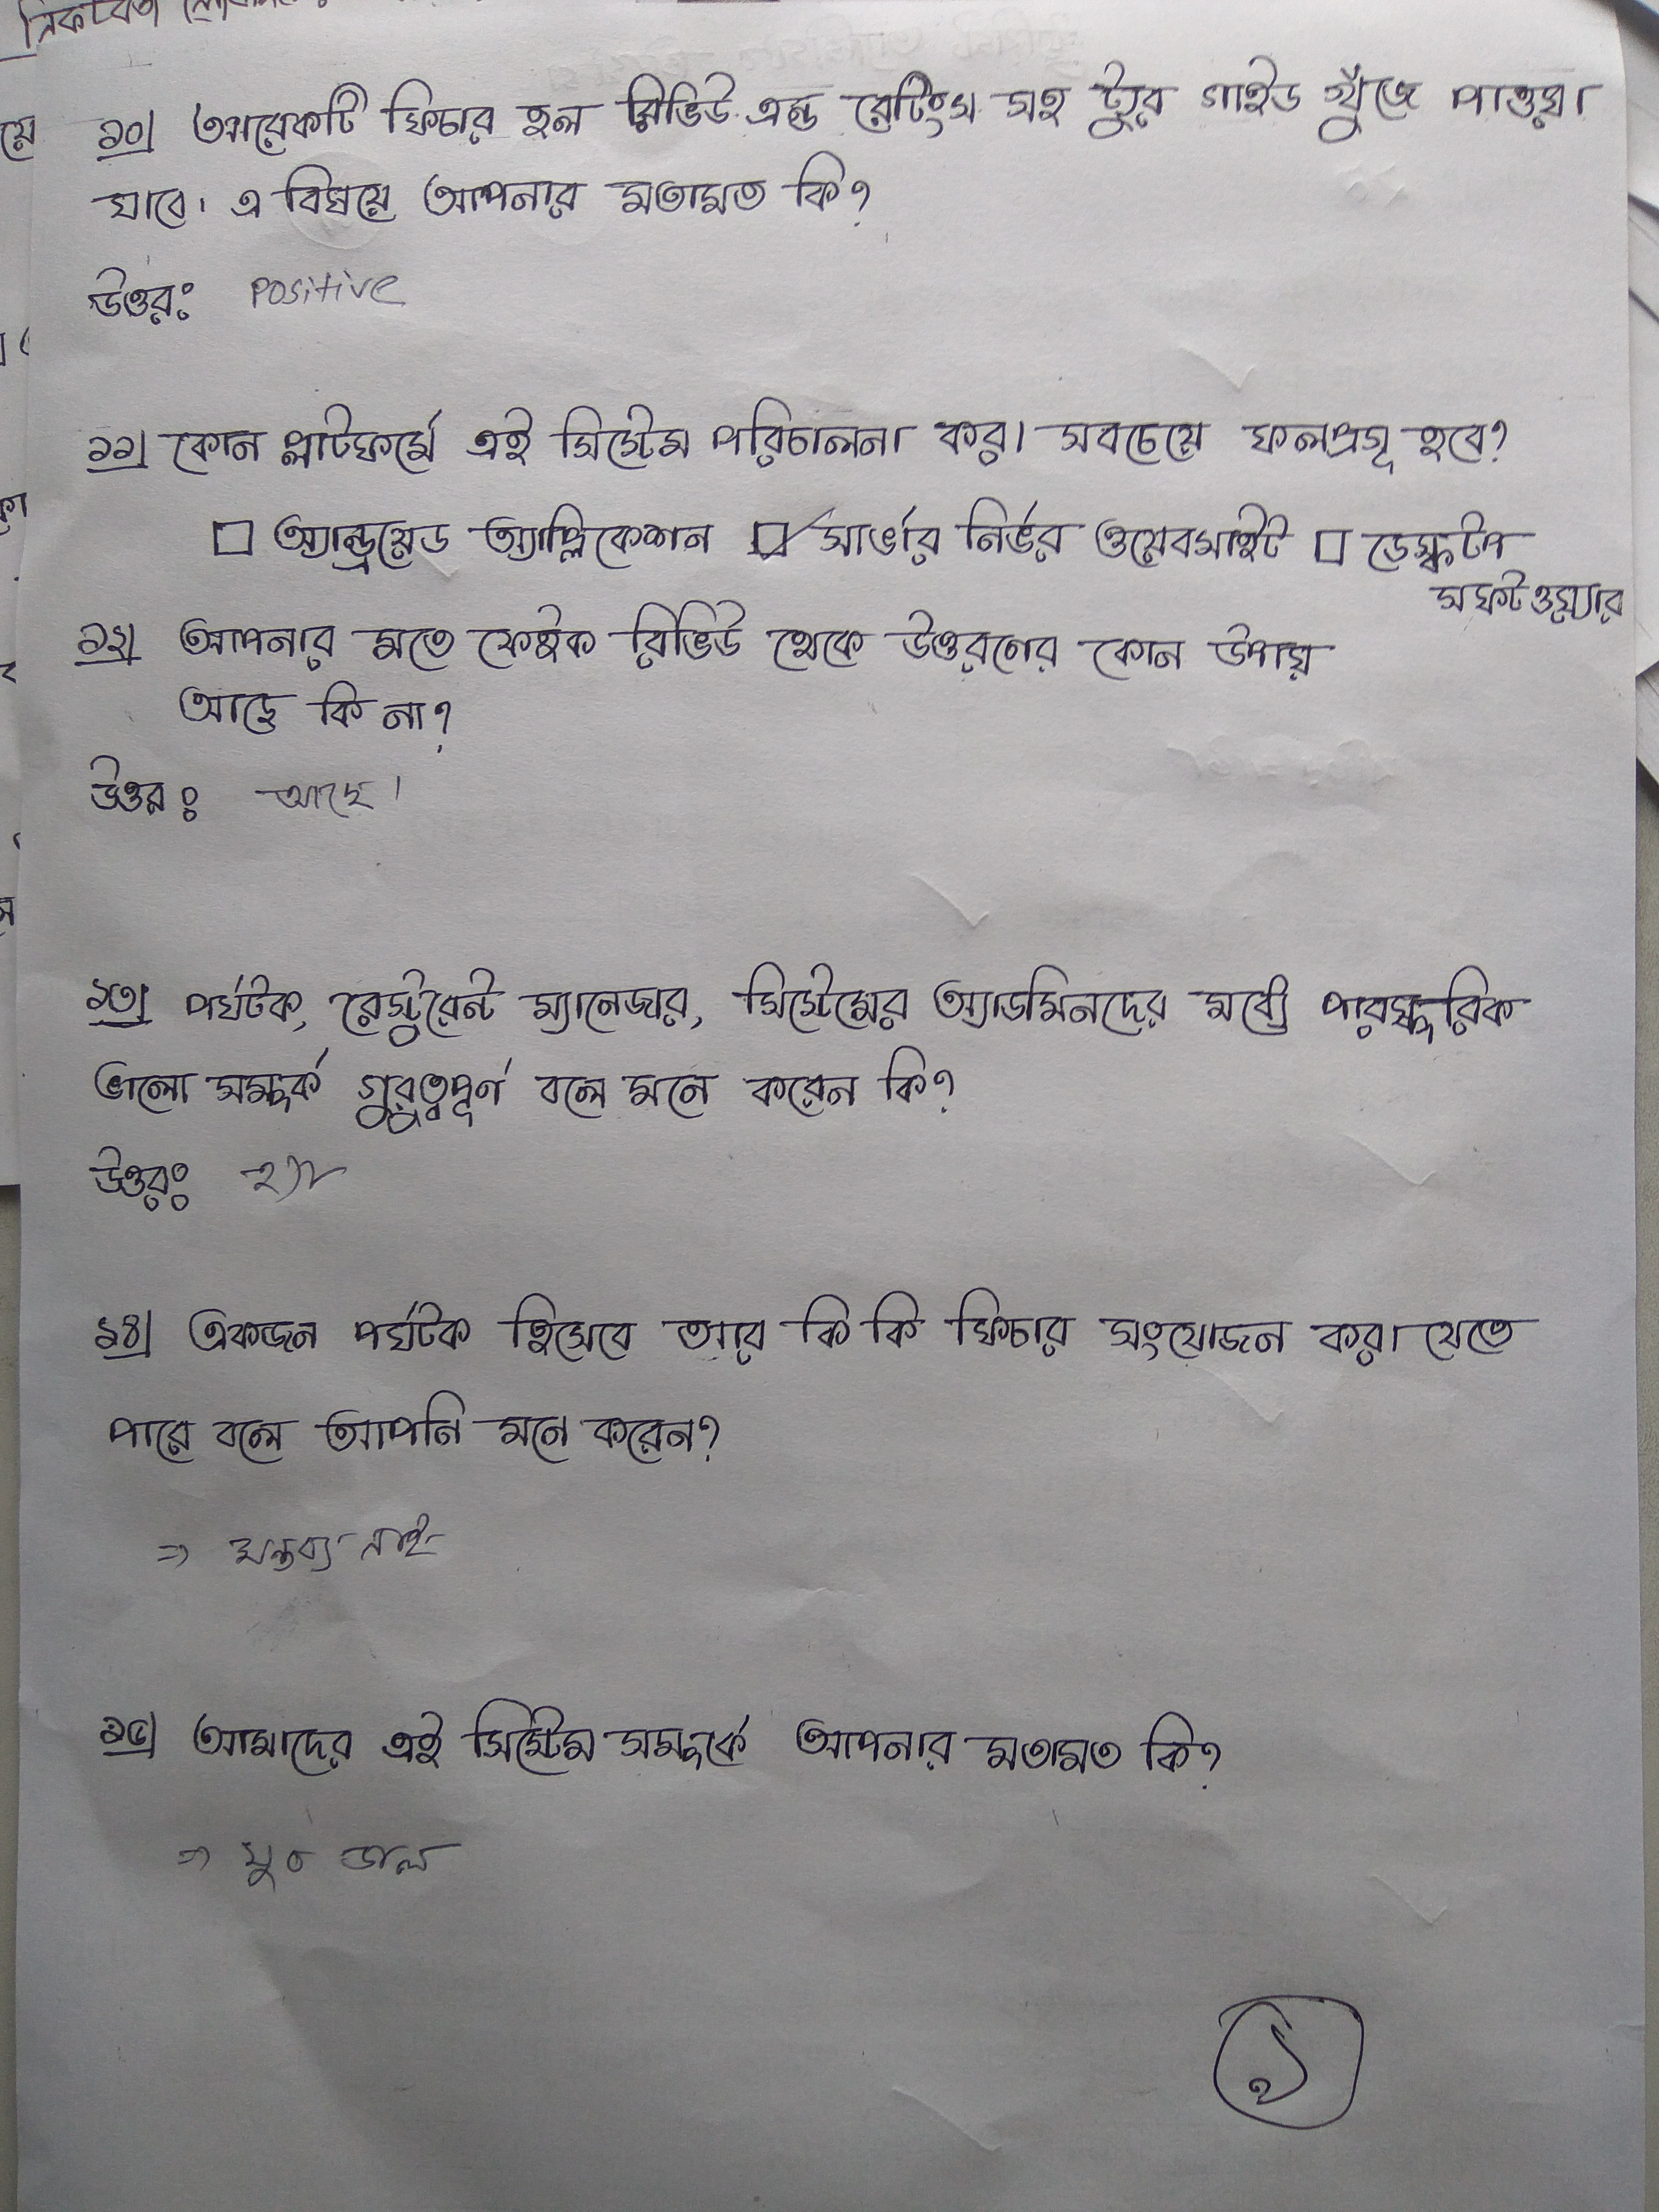 ১০| আরেকটি ফিচার হল রিভিউ এন্ড রেটিংস সহ ট্যুর গাইড খুঁজে পাওয়া
যাবে। এ বিষয়ে আপনার মতামত কি?
উত্তরঃ positive
১১| কোন প্লাটফর্মে এই সিস্টেম পরিচালনা করা সবচেয়ে ফলপ্রসূ হবে?
□ অ্যান্ড্রয়েড অ্যাপ্লিকেশন ☑ সার্ভার নির্ভর ওয়েবসাইট □ ডেস্কটপ
সফটওয়্যার
১২| আপনার মতে ফেইক রিভিউ থেকে উত্তরণের কোন উপায়
আছে কি না?
উত্তরঃ আছে।
১৩| পর্যটক, রেস্টুরেন্ট ম্যানেজার, সিস্টেমের অ্যাডমিনদের মধ্যে পারস্পরিক
ভালো সম্পর্ক গুরুত্বপূর্ণ বলে মনে করেন কি?
উত্তরঃ হ্যাঁ
১৪| একজন পর্যটক হিসেবে আর কি কি ফিচার সংযোজন করা যেতে
পারে বলে আপনি মনে করেন?
⇒ মন্তব্য নাই
১৫| আমাদের এই সিস্টেম সম্পর্কে আপনার মতামত কি?
⇒ খুব ভাল
১